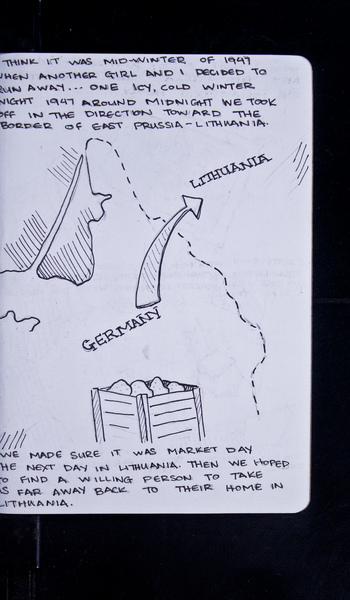 THINK IT WAS MID-WINTER OF 1947
WHEN ANOTHER GIRL AND I DECIDED TO
RUN AWAY... ONE ICY, COLD WINTER
NIGHT 1947 AROUND MIDNIGHT WE TOOK
OFF IN THE DIRECTION TOWARD THE
BORDER OF EAST PRUSSIA-LITHUANIA.
LITHUANIA
GERMANY
WE MADE SURE IT WAS MARKET DAY
HE NEXT DAY IN LITHUANIA. THEN WE HOPED
TO FIND A WILLING PERSON TO TAKE
US FAR AWAY BACK TO THEIR HOME IN
LITHUANIA.